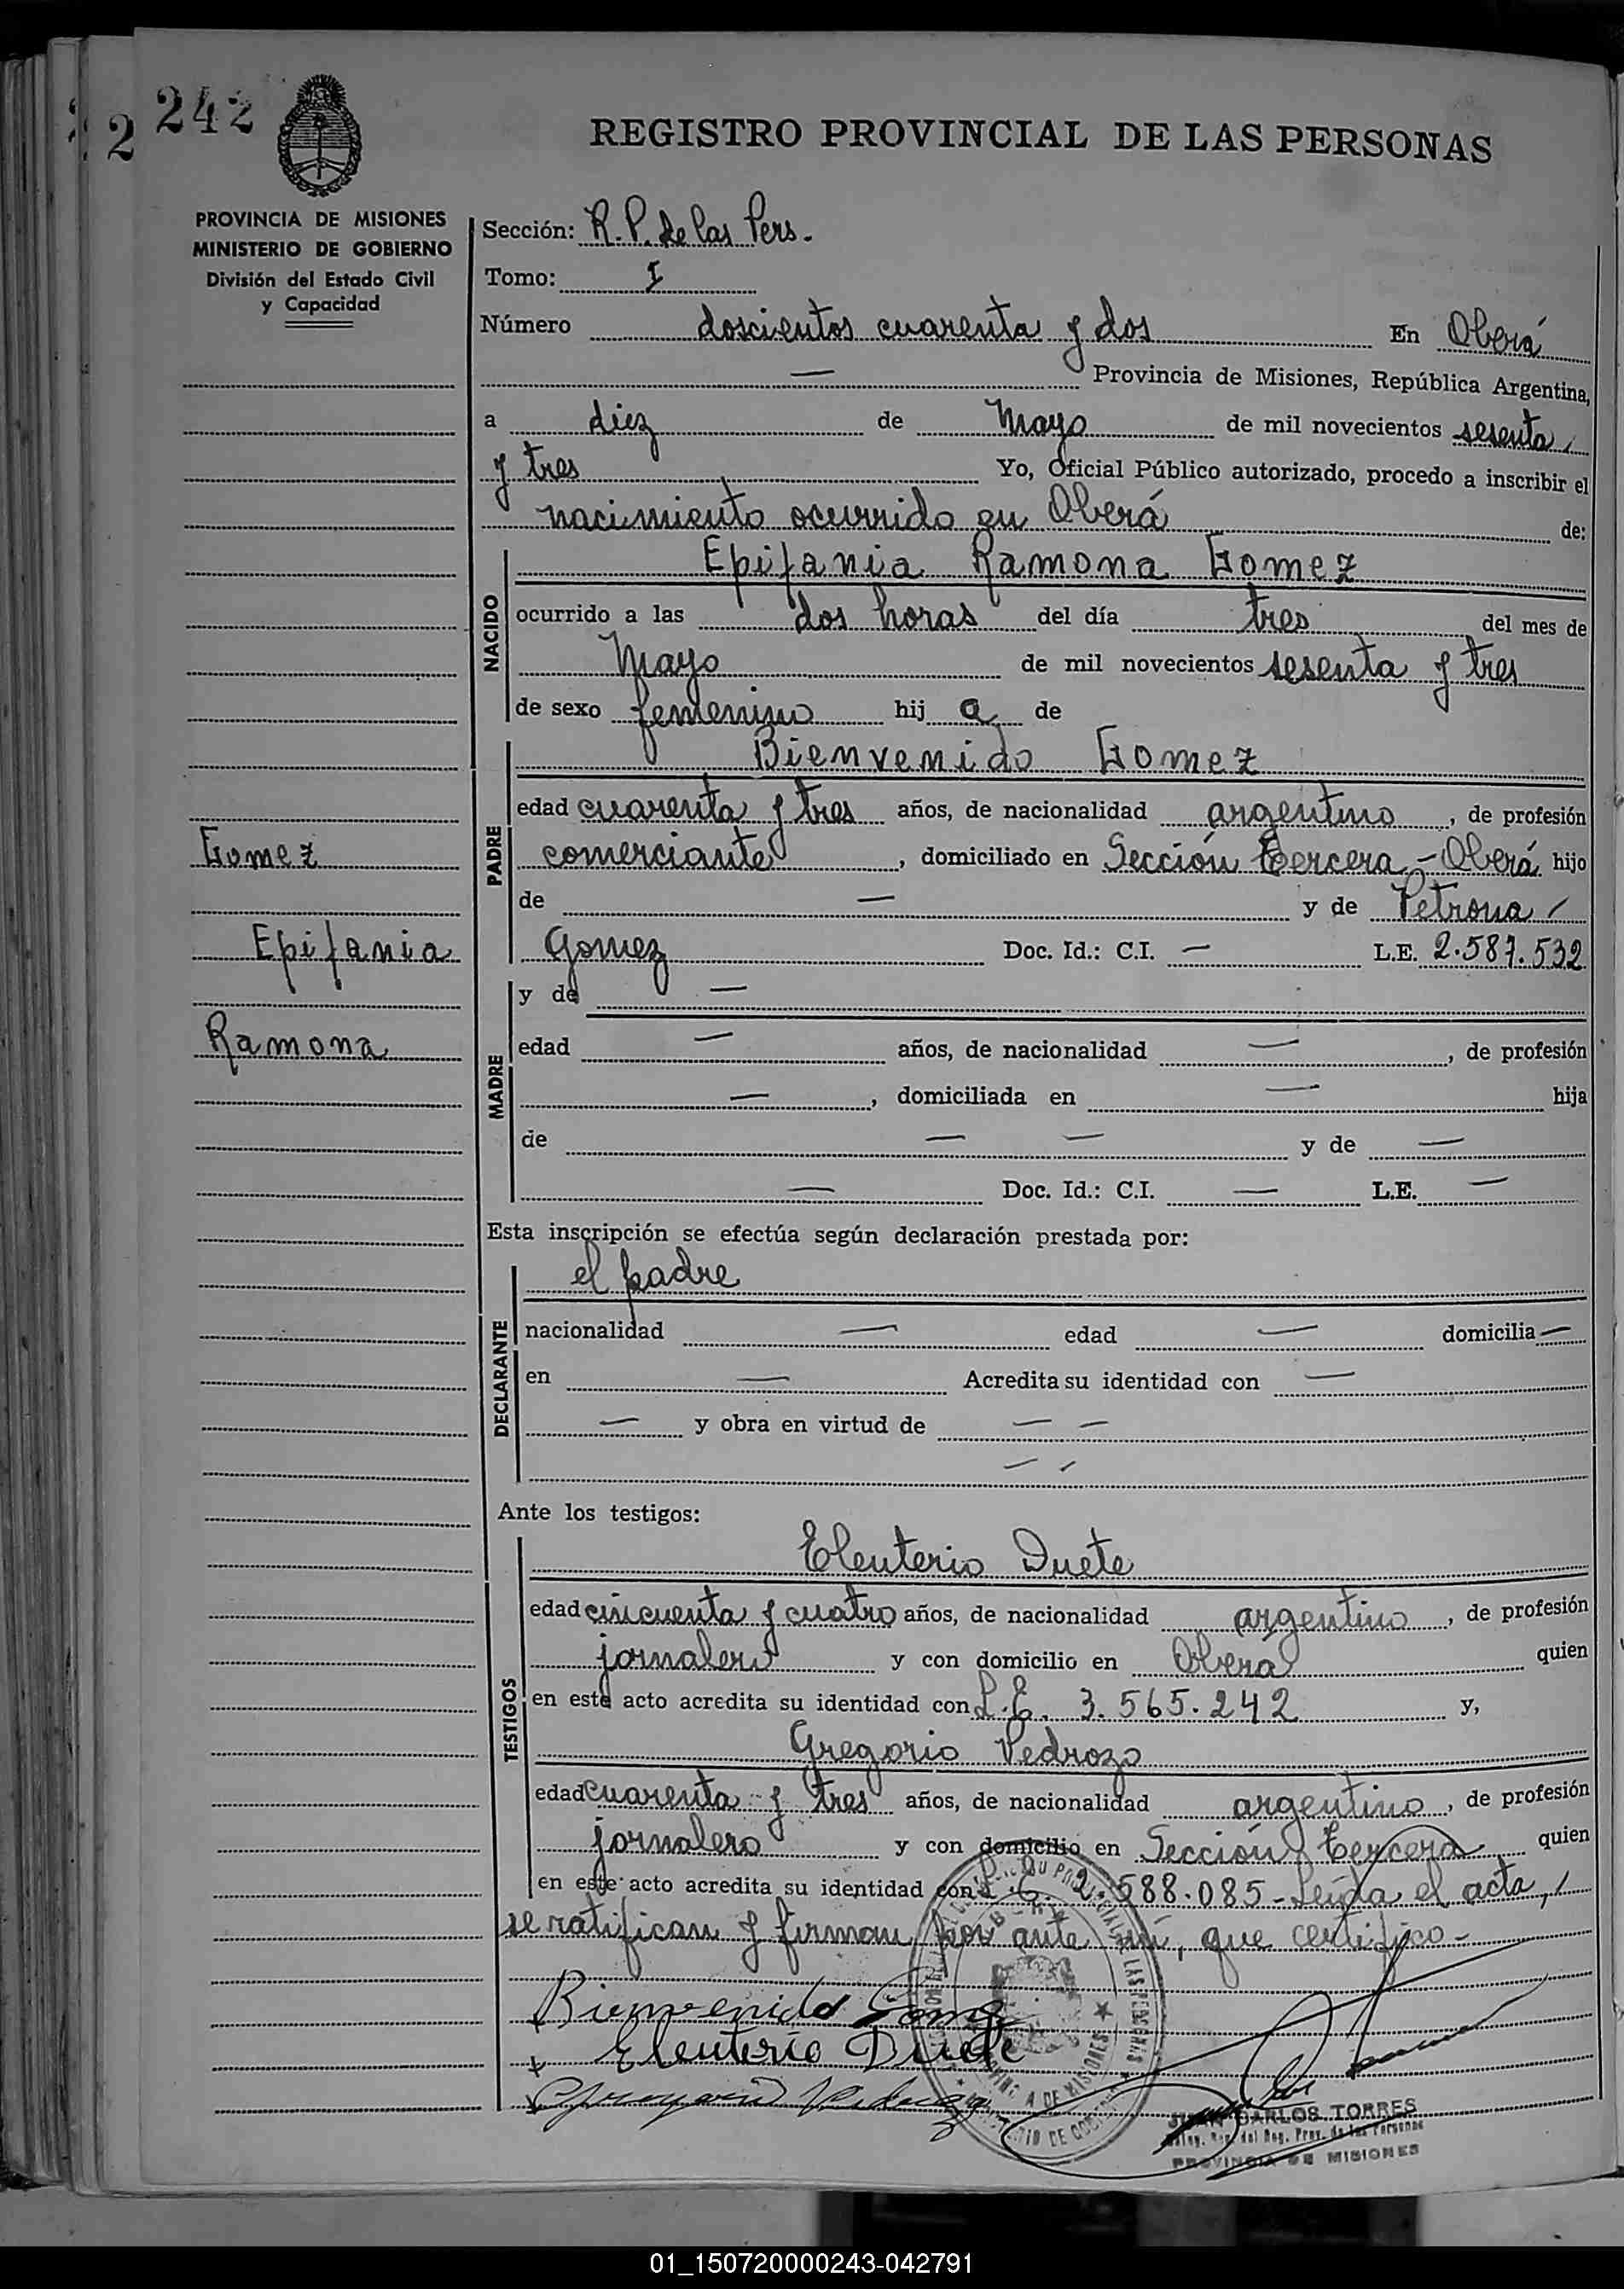 242
2
REGISTRO PROVINCIAL DE LAS PERSONAS
PROVINCIA DE MISIONES
MINISTERIO DE GOBIERNO
División del Estado Civil
y Capacidad
Sección: R.P. de las Pers.
Tomo: I
Número doscientos cuarenta y dos En Oberá
— Provincia de Misiones, República Argentina,
a diez de Mayo de mil novecientos sesenta
y tres Yo, Oficial Público autorizado, procedo a inscribir el
nacimiento ocurrido en Oberá de:
NACIDO
Epifania Ramona Gomez
ocurrido a las dos horas del día tres del mes de
Mayo de mil novecientos sesenta y tres
de sexo femenino hij a de
PADRE
Bienvenido Gomez
edad cuarenta y tres años, de nacionalidad argentino, de profesión
comerciante, domiciliado en Sección tercera - Oberá hijo
de — y de Petrona
Gomez Doc. Id.: C.I. — L.E. 2.587.532
Gomez
Epifania
Ramona
MADRE
y de —
edad — años, de nacionalidad —, de profesión
—, domiciliada en — hija
de — — y de —
— Doc. Id.: C.I. — L.E. —
Esta inscripción se efectúa según declaración prestada por:
DECLARANTE
el padre
nacionalidad — edad — domicilia —
en — Acredita su identidad con —
— y obra en virtud de — —
Ante los testigos:
TESTIGOS
Eleuterio Duete
edad cincuenta y cuatro años, de nacionalidad argentino, de profesión
jornalero y con domicilio en Oberá quien
en este acto acredita su identidad con L.E. 3.565.242 y,
Gregorio Pedrozo
edad cuarenta y tres años, de nacionalidad argentino, de profesión
jornalero y con domicilio en Sección tercera quien
en este acto acredita su identidad con L.E. 2.588.085 - Leída el acta,
se ratifican y firman por ante mí, que certifico -
Bienvenido Gomez
Eleuterio Duete
JUAN CARLOS TORRES
PROVINCIA DE MISIONES
01_150720000243-042791